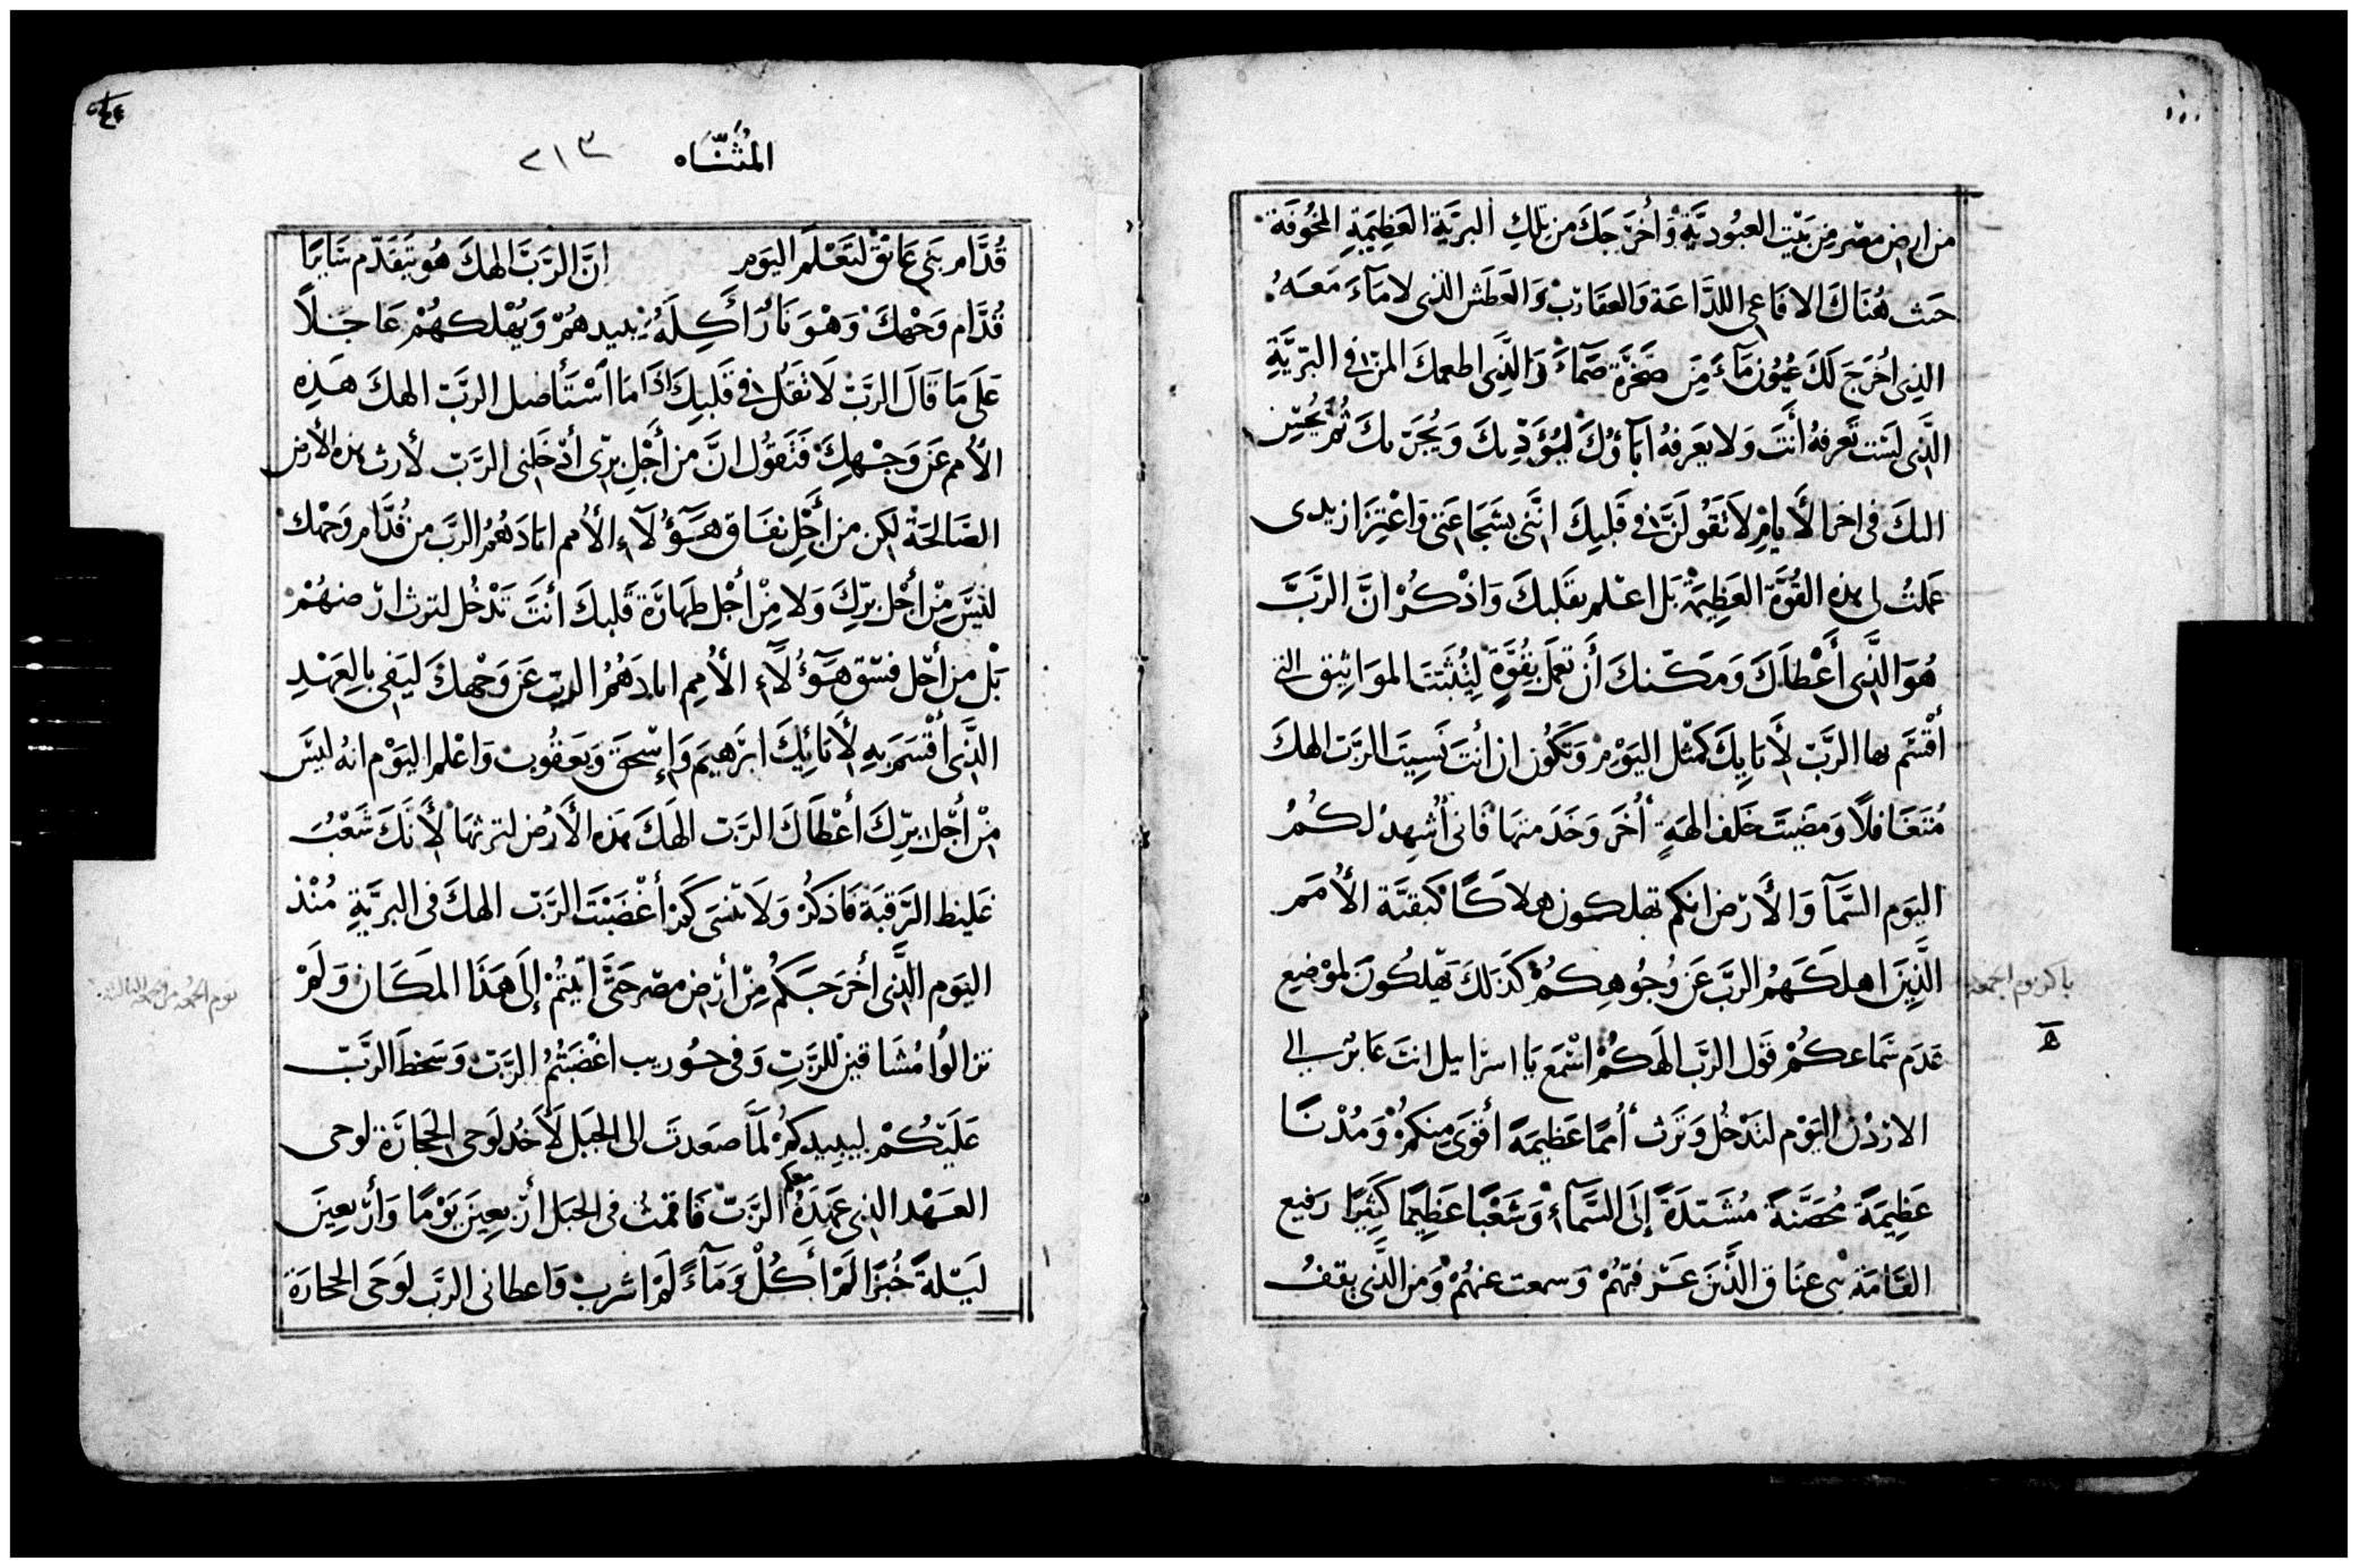 من ارض مصر من بيت العبوديّة وأخرجك من تلك البريّة العظيمة المخوفة
حيث هناك الافاعى اللدّاعة والعقارب والعطش الذى لا مآء معه
الذى أخرج لك عيون مآء من صخرة صمّآء والذى اطعمك المنّ فى البريّة
الذى لست تعرفه أنت ولا يعرفه اباؤك ليؤدّبك ويجرّبك ثم يحسن
اليك فى اخر الأيام لا تقولنّ فى قلبك انّنى بشجاعتى واعتزاز يدى
عملت لى هذه القوّة العظيمة بل اعلم بقلبك واذكر انّ الربّ
هو الذى أعطاك ومكّنك أن تعمل بقوّة ليثبّت المواثيق التى
أقسم بها الربّ لأبايك كمثل اليوم وتكون ان أنت نسيت الربّ الهك
متغافلاً ومضيت خلف الهة أخر وخدمتها فانى أشهد لكم
اليوم السّمآ والأرض انكم تهلكون هلاكًا كبقيّة الأمم
الّذين اهلكهم الربّ عن وجوهكم كذلك تهلكون لموضع
عدم سماعكم قول الربّ الهكم اسمع يا اسرايل انت عابر الى
الاردن اليوم لتدخل وترث أممًا عظيمة أقوى منكم ومدنًا
عظيمة محصّنة مشيّدة إلى السّمآء وشعبًا عظيمًا كثيرًا رفيع
القامة بنى عناق الّذين عرفتهم وسمعت عنهم ومن الذى يقف
باكر يوم الجمعة
المثنّاه ٢١٣
قدّام بنى عاناق لتعلم اليوم انّ الربّ الهك هو يتقدّم سايرًا
قدّام وجهك وهو نار أكلة يبيدهم ويهلكهم عاجلاً
على ما قال الربّ لا تقل فى قلبك اذا ما استأصل الربّ الهك هذه
الأمم عن وجهك فتقول انّ من أجل برّى أدخلنى الربّ لأرث هذه الأرض
الصالحة لكن من أجل نفاق هؤلآء الأمم ابادهم الربّ من قدّام وجهك
ليس من أجل برّك ولا من أجل طهارة قلبك أنت تدخل لترث ارضهم
بل من أجل فسق هؤلآء الأمم ابادهم الربّ عن وجهك ليفى بالعهد
الّذى أقسم به لأبائك ابرهيم وإسحق ويعقوب واعلم اليوم انه ليس
من أجل برّك أعطاك الربّ الهك هذه الأرض لترثها لأنك شعب
غليظ الرّقبة فاذكر ولا تنسى كم أغضبت الربّ الهك فى البريّة منذ
اليوم الّذى أخرجكم من أرض مصر حتّى أتيتم إلى هذا المكان ولم
تزالوا مشاقين للربّ وفى حوريب اغضبتم الربّ وسخط الربّ
عليكم ليبيدكم لمّا صعدت الى الجبل لأخد لوحى الحجارة لوحى
العهد الذى عهده معكم الربّ فاقمت فى الجبل أربعين يومًا وأربعين
ليلة خبزًا لم أكل ومآءً لم اشرب واعطانى الربّ لوحى الحجارة